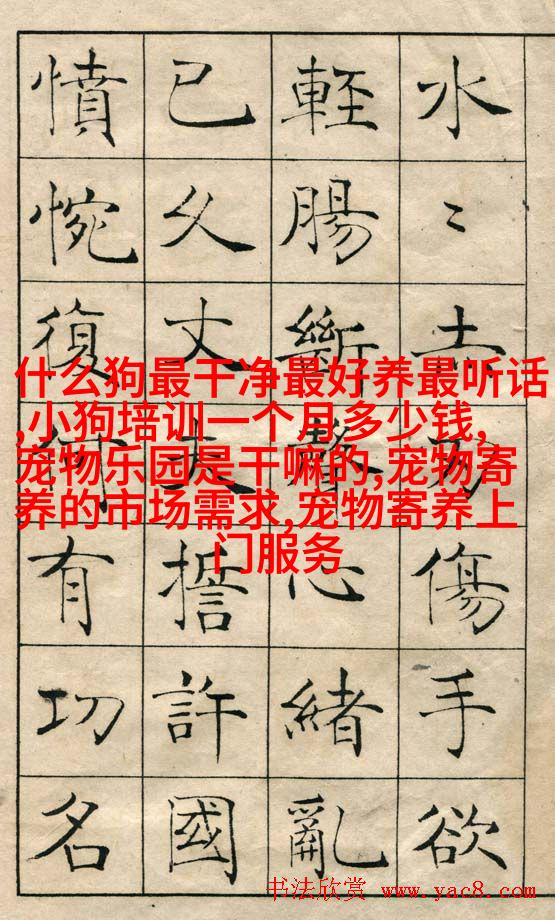 水〻赤刃傷手欲
輕腸斷聲心緒亂
已久丈夫誓許國
憤惋復何有功名
什么狗最干净最好养最听话
,小狗培训一个月多少钱,
宠物乐园是干嘛的,宠物寄
养的市场需求,宠物寄养上
门服务
书法欣赏 www.yac8.com